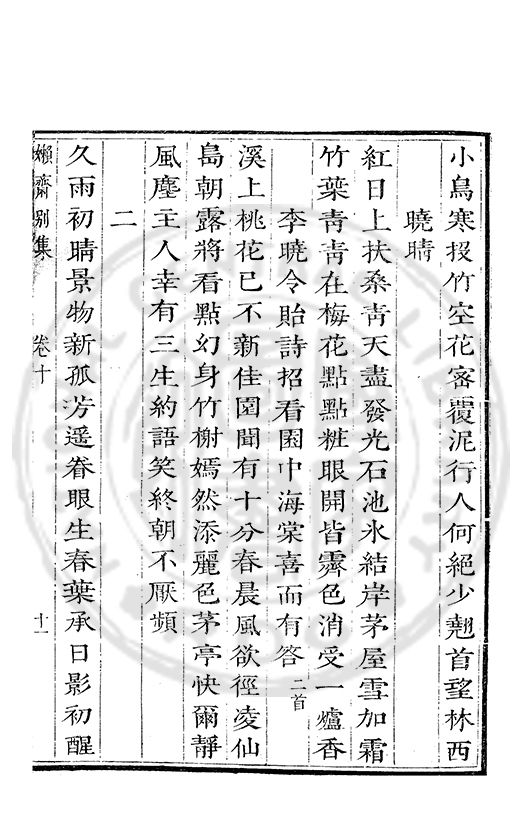 小鳥寒投竹空花密覆泥行人何絕少翹首望林西
曉晴
紅日上扶桑靑天盡發光石池氷結岸茅屋雪加霜
竹葉靑靑在梅花點點粧眼開皆霽色消受一爐香
李曉令貽詩招看園中海棠喜而有答二首
溪上桃花已不新佳園聞有十分春晨風欲徑凌仙
島朝露將看點幻身竹榭嫣然添麗色茅亭快爾靜
風塵主人幸有三生約語笑終朝不厭頻
二
久雨初晴景物新孤芳遥眷眼生春葉承日影初醒
嬾齋別集
卷十
十一